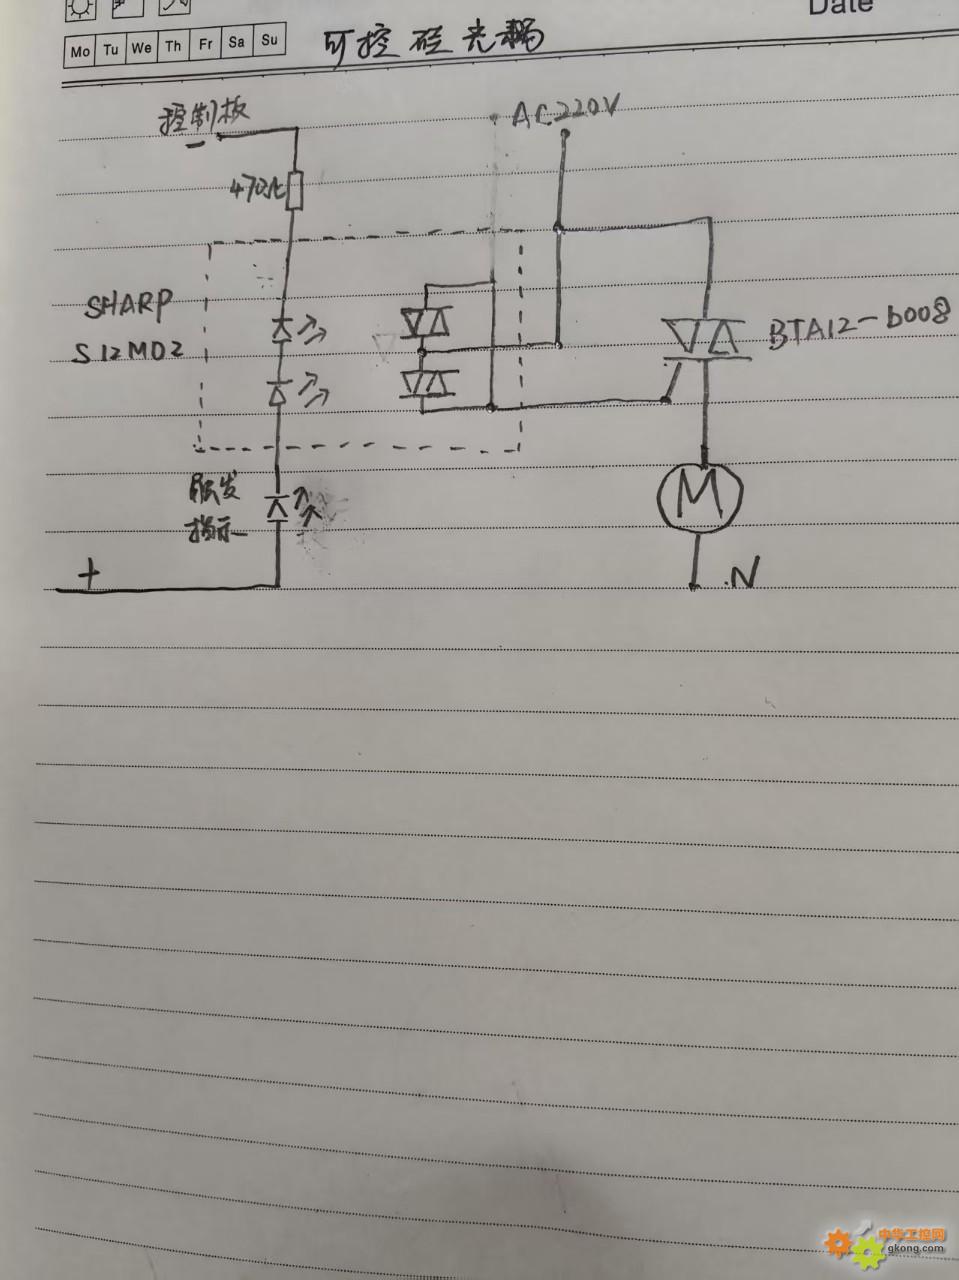 Date
Mo Tu We Th Fr Sa Su
可控硅光耦
控制板
AC220V
470Ω
SHARP
S12MD2
BTA12-600B
触发
指示
M
+
.N
中华工控网
gkong.com